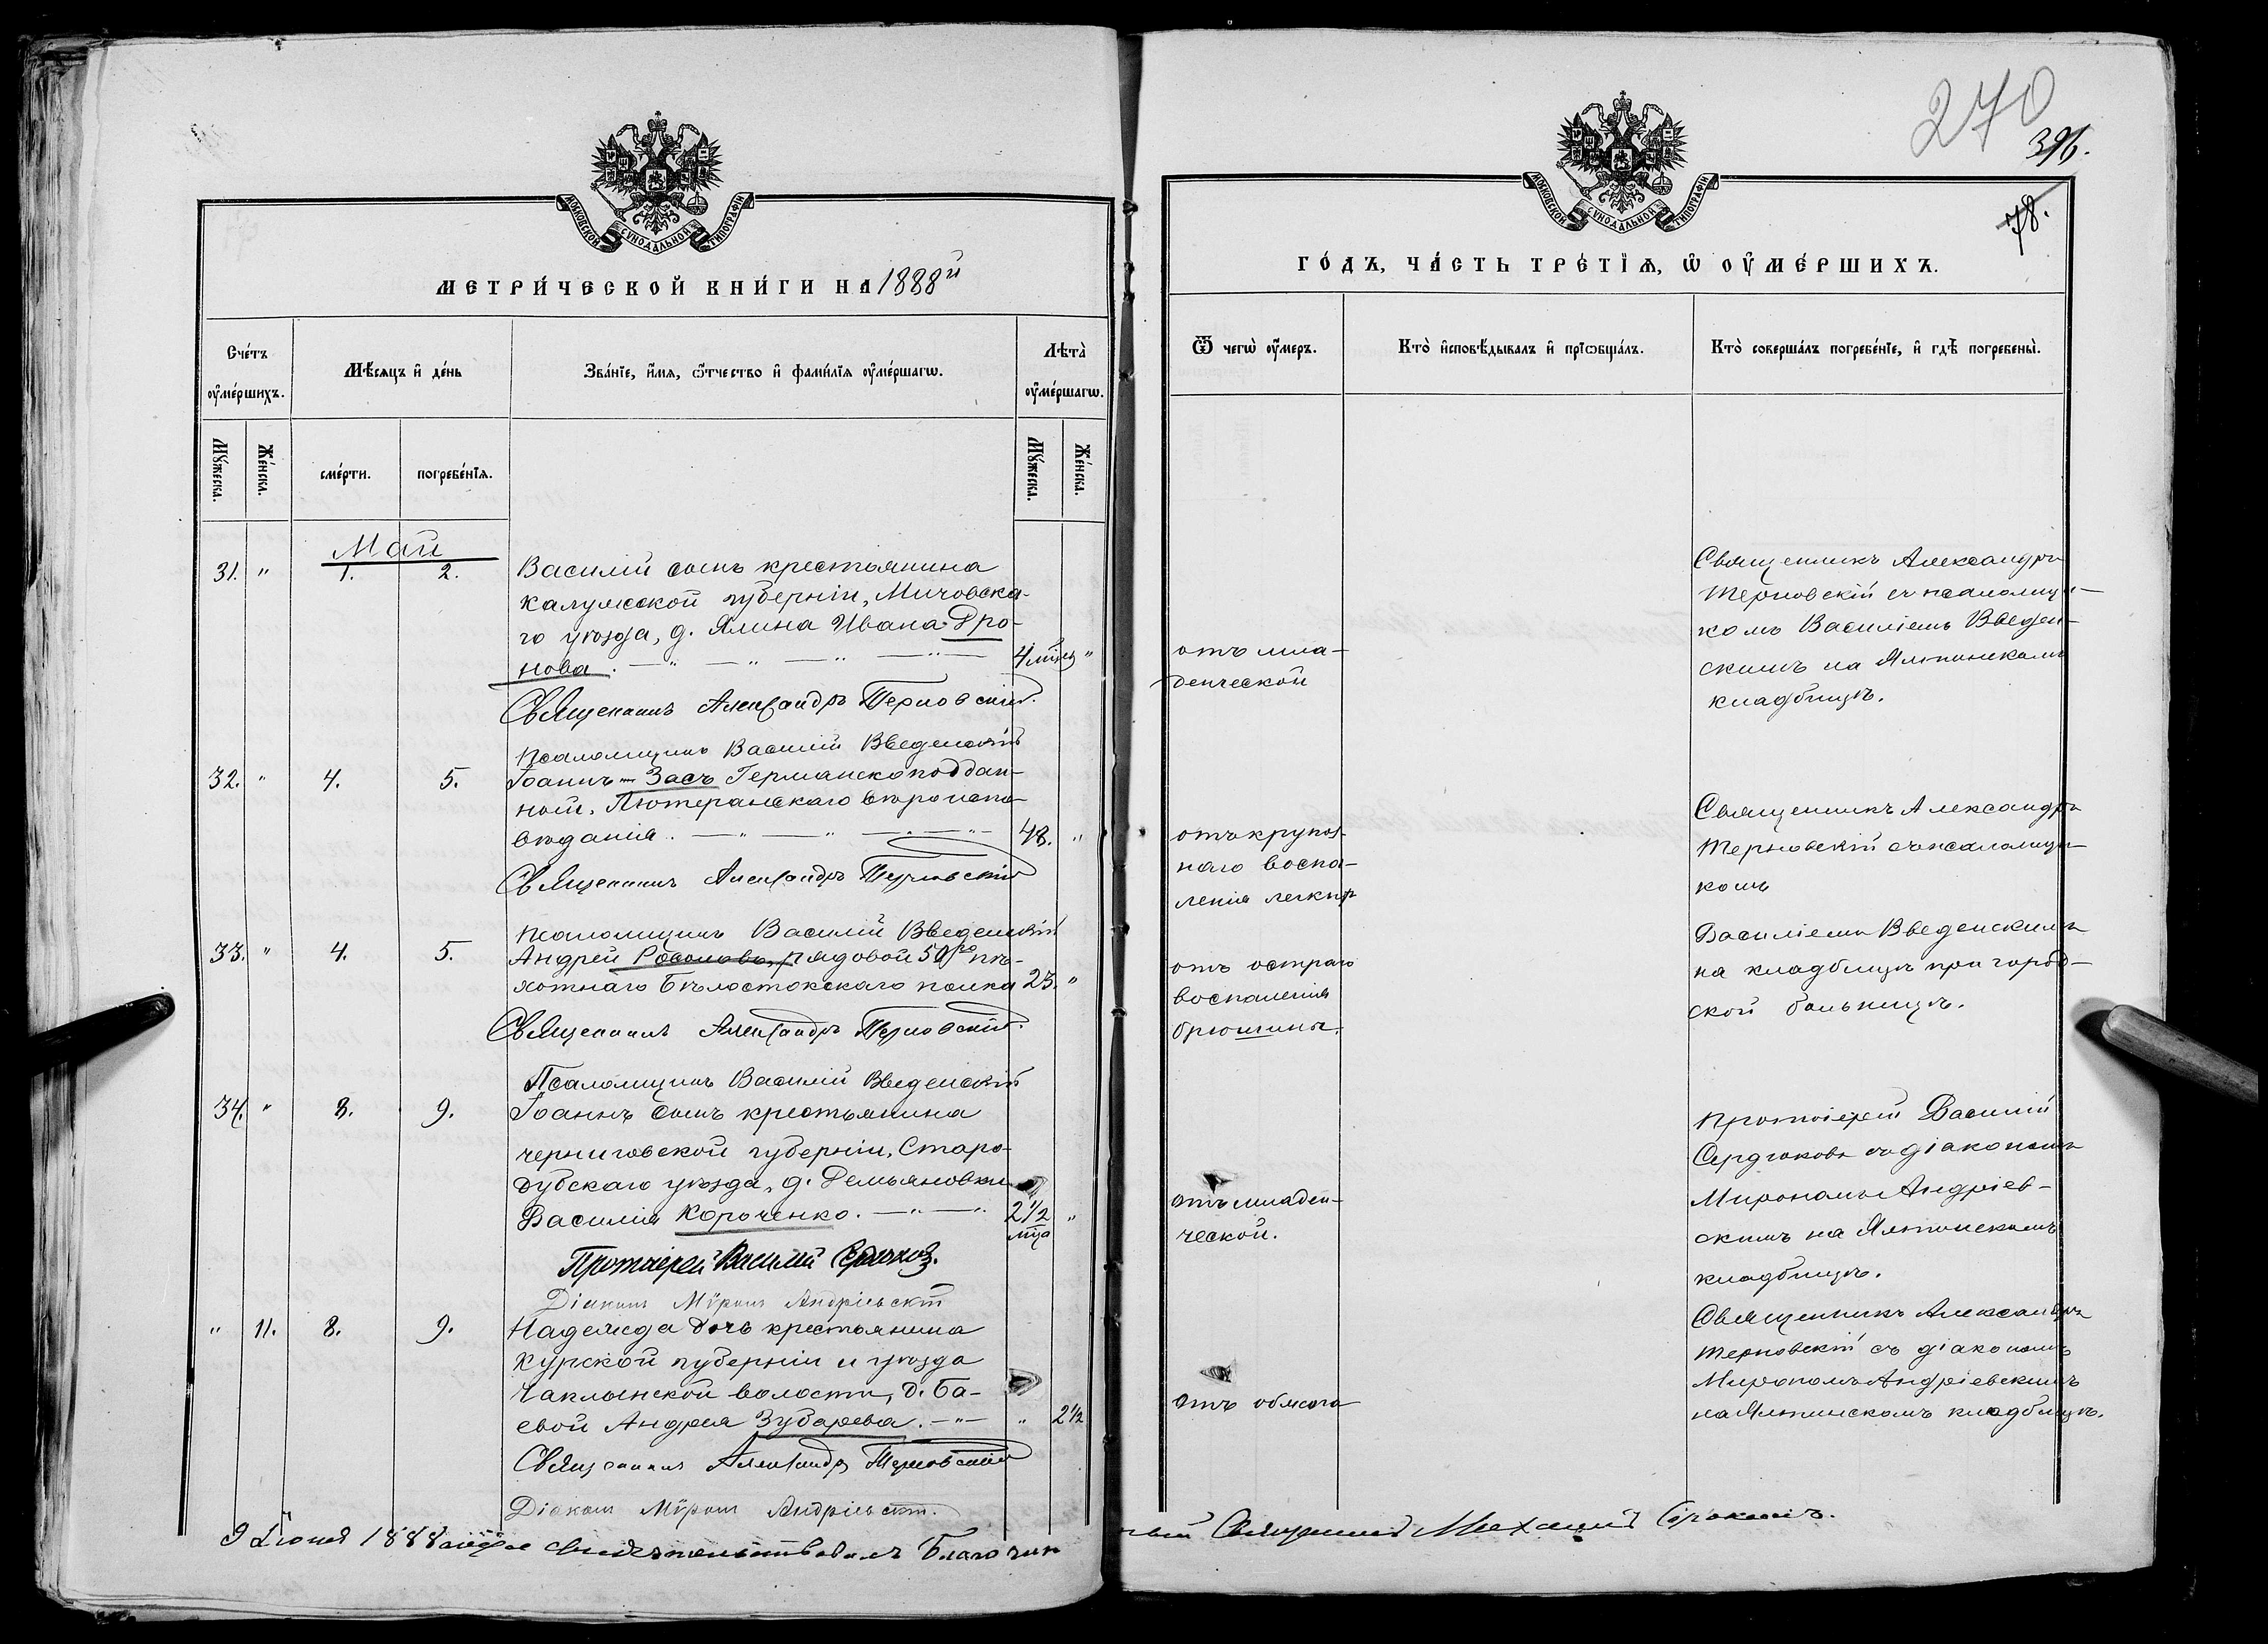 МОСКОВСКОЙ СУНОДАЛЬНОЙ ТИПОГРАФІИ
МЕТРИ́ЧЕСКОЙ КНИ́ГИ НА 1888й
Сче́тъ оу҆ме́ршихъ.
Мѣ́сяцъ и҆ де́нь
Зва́нїе, и҆́мя, ѻ҆́тчество и҆ фами́лїя оу҆ме́ршагѡ.
Лѣта̀ оу҆ме́ршагѡ.
Мꙋ́жеска.
Же́нска.
сме́рти.
погребе́нїѧ.
Мꙋ́жеска.
Же́нска.
Май
31. " 1. 2. Василій сынъ крестьянина
Калужской губерніи, Мичовска-
го уѣзда, д. Ялина Ивана Дро-
нова. — " — " — " — " — 4 мѣц "
Священникъ Александръ Терновскій.
Псаломщикъ Василій Введенскій
32. " 4. 5. Іоаннъ Засъ Германскоподдан-
ный, Лютеранскаго вѣроиспо-
вѣданія. — " — " — " — " — 48. "
Священникъ Александръ Терновскій
Псаломщикъ Василій Введенскій
33. " 4. 5. Андрей рядовой 50го пѣ-
хотнаго Бѣлостокскаго полка 23. "
Священникъ Александръ Терновскій.
Псаломщикъ Василій Введенскій
34. " 8. 9. Іоаннъ сынъ крестьянина
черниговской губерніи, Старо-
дубскаго уѣзда, д. Демьяновки
Василія Короченко. — " — " 2 1/2 мца "
Протоіерей Василій Сердюковъ.
Діаконъ Мѵронъ Андріевскій
" 11. 8. 9. Надежда дочь крестьянина
Курской губерніи и уѣзда
Чаплынской волости, д. Ба-
евой Андрея Зубарева. — " — " 2 1/2
Священникъ Александръ Терновскій
Діаконъ Мѵронъ Андріевскій.
9 Іюня 1888 года свидѣтельствовалъ Благочин
270
396.
78.
МОСКОВСКОЙ СУНОДАЛЬНОЙ ТИПОГРАФІИ
ГО́ДЪ, ЧА́СТЬ ТРЕ́ТЇѦ, Ѡ҆ ОУ҆МЕ́РШИХЪ.
Ѿ чегѡ̀ оу҆́меръ.
Кто̀ и҆сповѣ́дывалъ и҆ прїѡбща́лъ.
Кто̀ соверша́лъ погребе́нїе, и҆ гдѣ̀ погребены̀.
отъ мла-
денческой
Священникъ Александръ
Терновскій съ псаломщи-
комъ Василіемъ Введен-
скимъ на Ялтинскомъ
кладбищѣ.
отъ крупоз-
наго воспа-
ленія легкихъ
Священникъ Александръ
Терновскій съ псаломщи-
комъ
отъ остраго
воспаленія
брюшины.
Василіемъ Введенскимъ
на кладбищѣ при город-
ской больницѣ.
отъ младен-
ческой.
Протоіерей Василій
Сердюковъ съ діакономъ
Мирономъ Андріев-
скимъ на Ялтинскомъ
кладбищѣ.
отъ обжога
Священникъ Александръ
Терновскій съ діакономъ
Мирономъ Андріевскимъ
на Ялтинскомъ кладбищѣ.
ный Священникъ Михаилъ Сорокинъ.